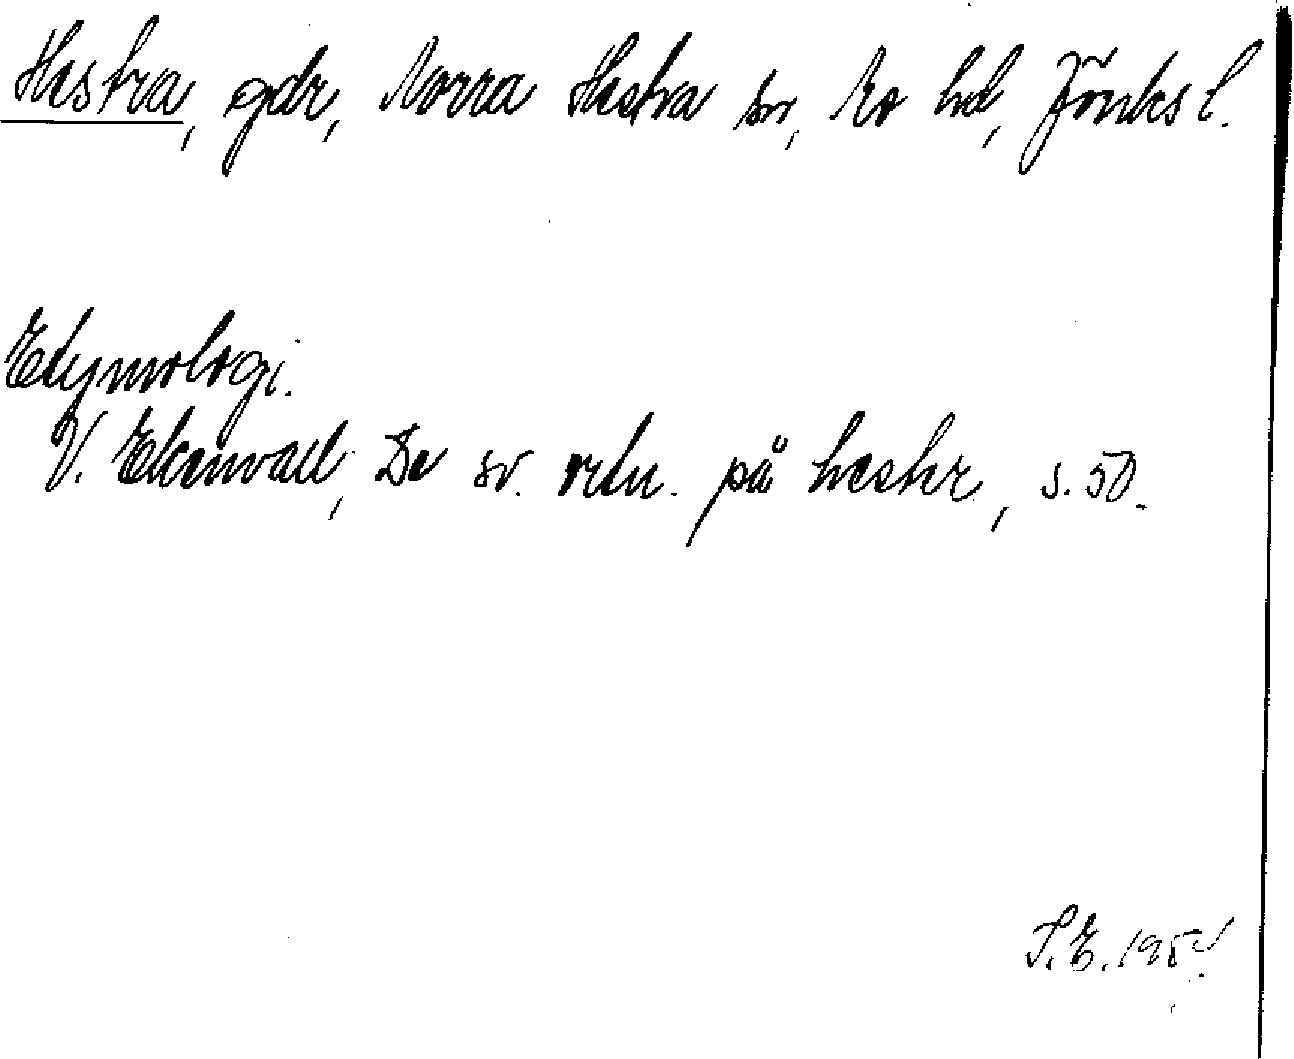 Hestra, gdr, Norra Hestra sn, Mo hd, Jönks l.
Etymologi.
V. Ekenvall, De sv. ortn. på hestr, s. 50.
S.E. 195